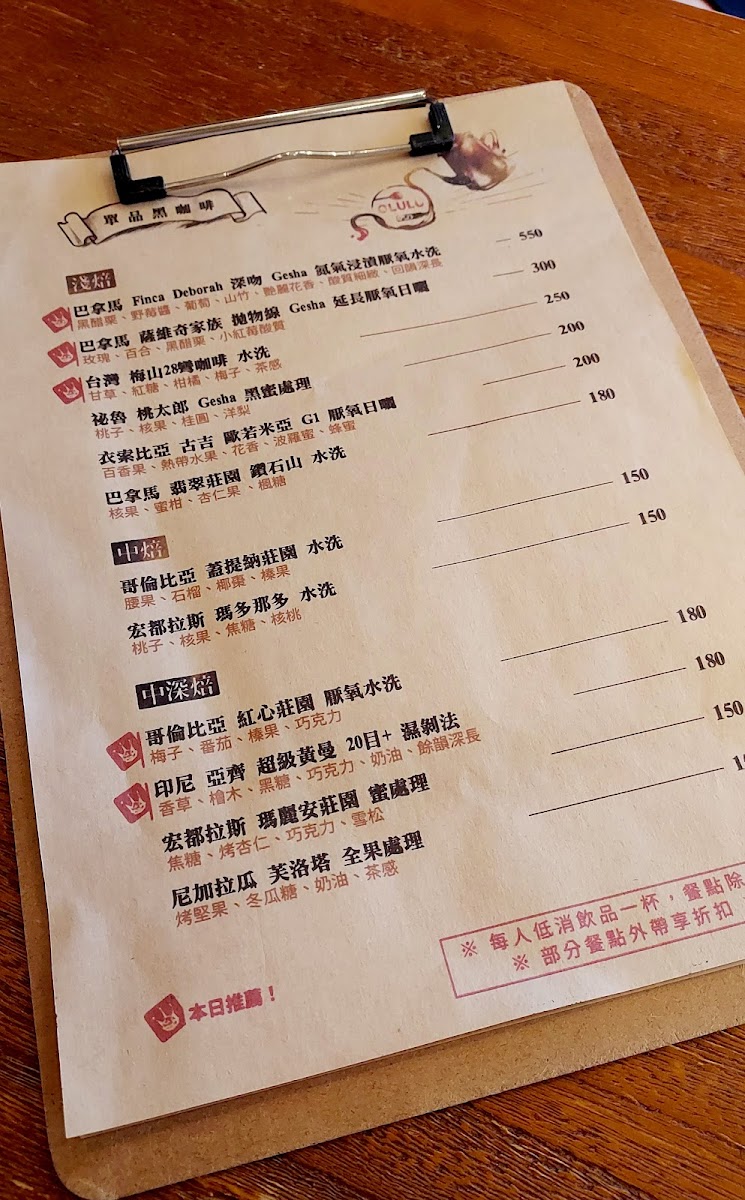 單品黑咖啡
OLULU
淺焙
巴拿馬 Finca Deborah 深吻 Gesha 氮氣浸漬厭氧水洗 550
黑醋栗、野莓醬、葡萄、山竹、艷麗花香、酸質細緻、回韻深長
巴拿馬 薩維奇家族 拋物線 Gesha 延長厭氧日曬 300
玫瑰、百合、黑醋栗、小紅莓酸質
台灣 梅山28彎咖啡 水洗 250
甘草、紅糖、柑橘、梅子、茶感
祕魯 桃太郎 Gesha 黑蜜處理 200
桃子、核果、桂圓、洋梨
衣索比亞 古吉 歐若米亞 G1 厭氧日曬 200
百香果、熱帶水果、花香、波羅蜜、蜂蜜
巴拿馬 翡翠莊園 鑽石山 水洗 180
核果、蜜柑、杏仁果、楓糖
中焙
哥倫比亞 蓋提納莊園 水洗 150
腰果、石榴、椰棗、榛果
宏都拉斯 瑪多那多 水洗 150
桃子、核果、焦糖、核桃
中深焙
哥倫比亞 紅心莊園 厭氧水洗 180
梅子、番茄、榛果、巧克力
印尼 亞齊 超級黃曼 20目+ 濕剝法 180
香草、檜木、黑糖、巧克力、奶油、餘韻深長
宏都拉斯 瑪麗安莊園 蜜處理 150
焦糖、烤杏仁、巧克力、雪松
尼加拉瓜 芙洛塔 全果處理
烤堅果、冬瓜糖、奶油、茶感
※ 每人低消飲品一杯，餐點除
※ 部分餐點外帶享折扣
本日推薦！